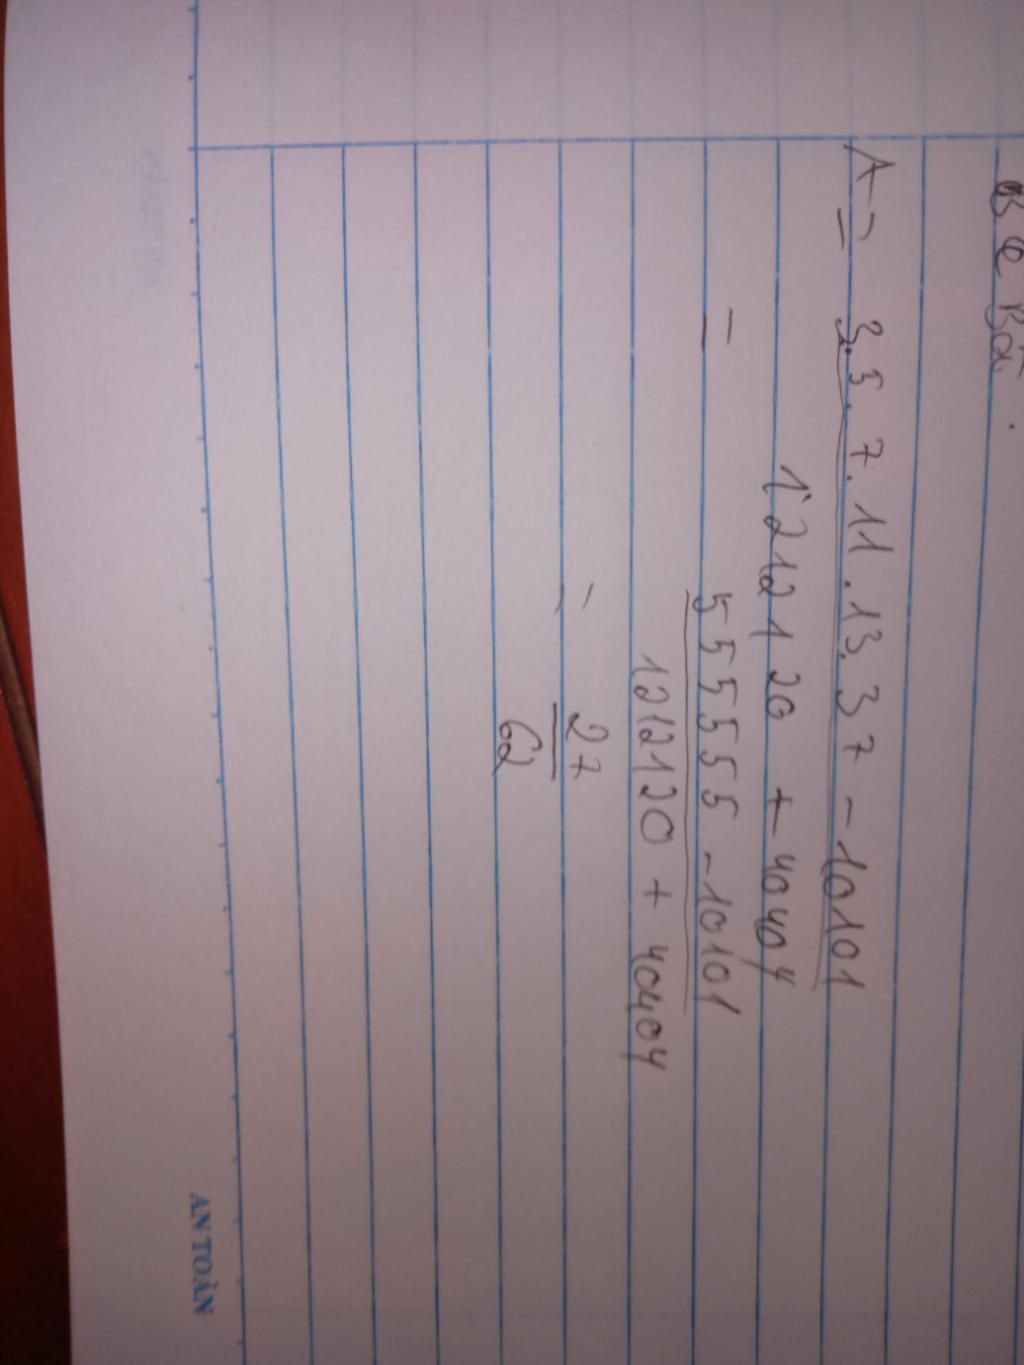 Bài
A = 3.5.7.11.13.37 - 10101
1212120 + 40404
= 555555 - 10101
1212120 + 40404
= 27
62
AN TOÀN